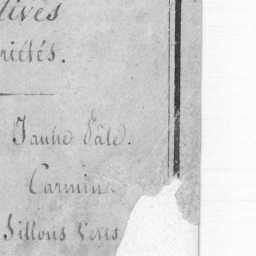 tives
riétés.
Jaune Pâle.
Carmin.
Sillons Verts